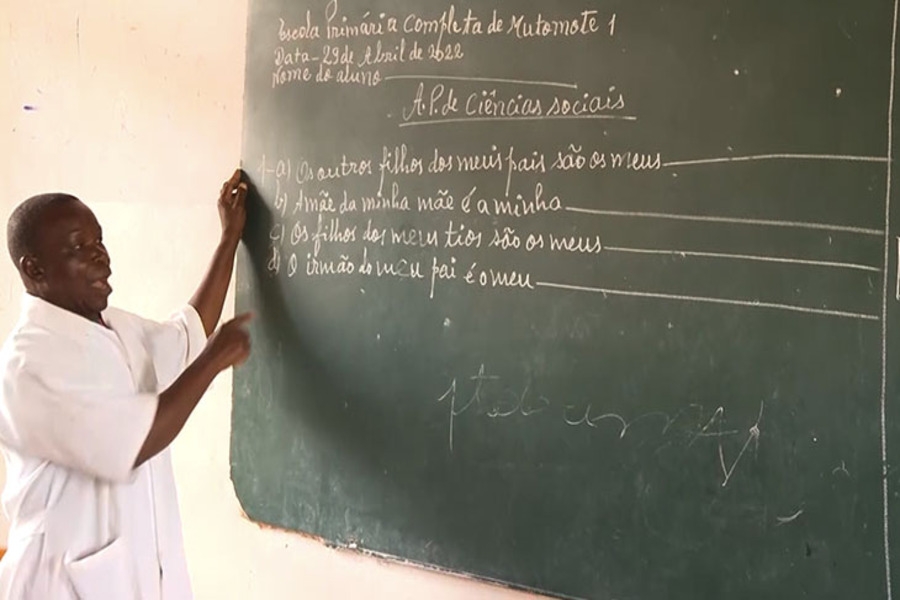 Escola Primária Completa de Mutomote 1
Data - 29 de Abril de 2022
Nome do aluno
A.P. de Ciências sociais
1-a) Os outros filhos dos meus pais são os meus
b) A mãe da minha mãe é a minha
c) Os filhos dos meus tios são os meus
d) O irmão do meu pai é o meu